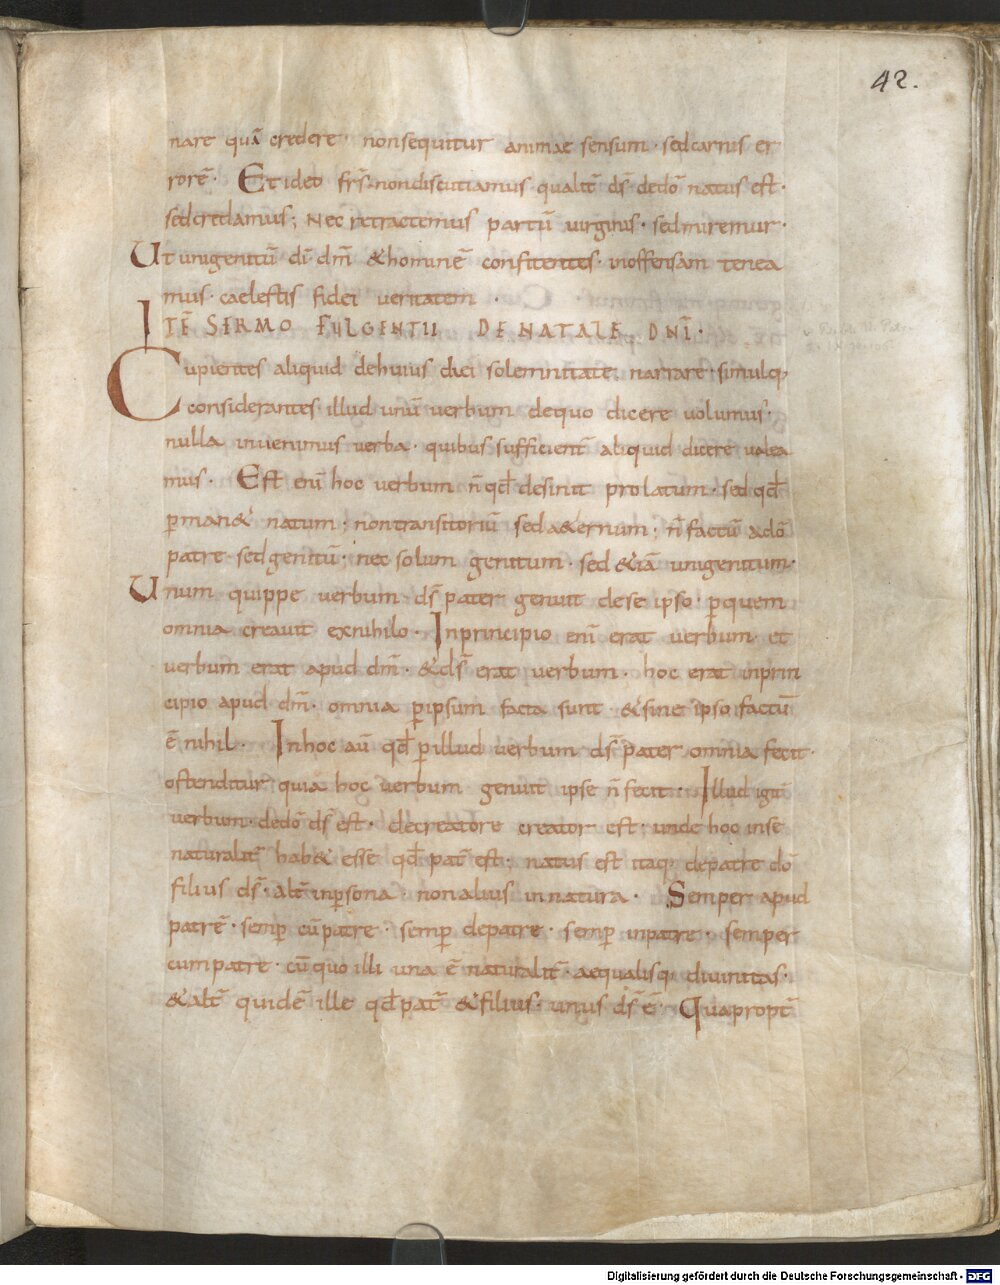 42.
nare quā credere · non sequitur animae sensum · sed carnis er
rorē · Et ideo frs̄ · non discutiamus · qualit̄ ds̄ de dō natus est ·
sed credamus ; Nec retractemus partū virginis · sed miremur ·
Ut unigenitū dī · dm̄ & hominē confitentes · inoffensam tenea
mus · caelestis fidei veritatem ·
ITĒ SERMO FULGENTII DE NATALE DNĪ ·
Cupientes aliquid de huius diei solemnitate, narrare · simulq;
considerantes illud unū verbum de quo dicere volumus ·
nulla invenimus verba · quibus sufficient̄ aliquid dicere valea
mus · Est enī hoc verbum n̄ qđ desinit prolatum · sed qđ
ꝑman& natum ; non transitoriū sed a&ernum ; n̄ factū a dō
patre · sed genitū ; nec solum genitum · sed &iā unigenitum ·
Unum quippe verbum ds̄ pater genuit de se ipso · ꝑ quem
omnia creavit ex nihilo · In principio enī erat verbum · et
verbum erat apud dm̄ · & ds̄ erat verbum · hoc erat in prin
cipio apud dm̄ · omnia ꝑ ipsum facta sunt · & sine ipso factū
ē nihil · In hoc aū qđ ꝑ illud verbum ds̄ pater omnia fecit ·
ostenditur quia hoc verbum genuit ipse n̄ fecit · Illud igit̄
verbum · de dō ds̄ est · de creatore creator est ; unde hoc in se
naturalit̄ hab& esse qđ pat̄ est ; natus est itaq; de patre dō
filius ds̄ · alt̄ in ꝑsona · non alius in natura · Semper apud
patrē · semꝑ cū patre · semꝑ de patre · semꝑ in patre · semper
cum patre · cū quo illi una ē naturalit̄ · aequalisq; divinitas ·
& alt̄ quidē ille qđ pat̄ & filius · unus ds̄ ē · Quapropt̄
Digitalisierung gefördert durch die Deutsche Forschungsgemeinschaft - DFG